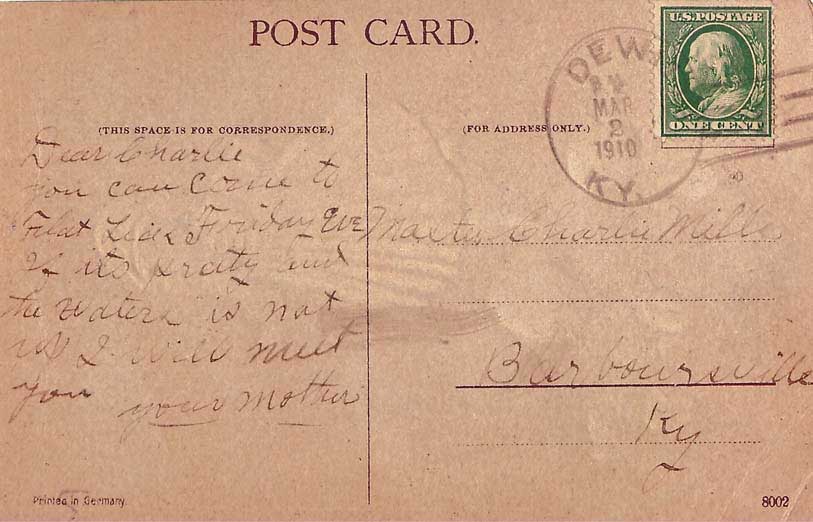 POST CARD.
U.S. POSTAGE
ONE CENT
DEW
P M
MAR
2
1910
KY.
(THIS SPACE IS FOR CORRESPONDENCE.)
(FOR ADDRESS ONLY.)
Dear Charlie
you can come to
Flat Lick Friday Eve
if its pratty and
the waters is not
up I will meet
you your mother
Master Charlie Mills
Barboursville
Ky
Printed in Germany.
8002